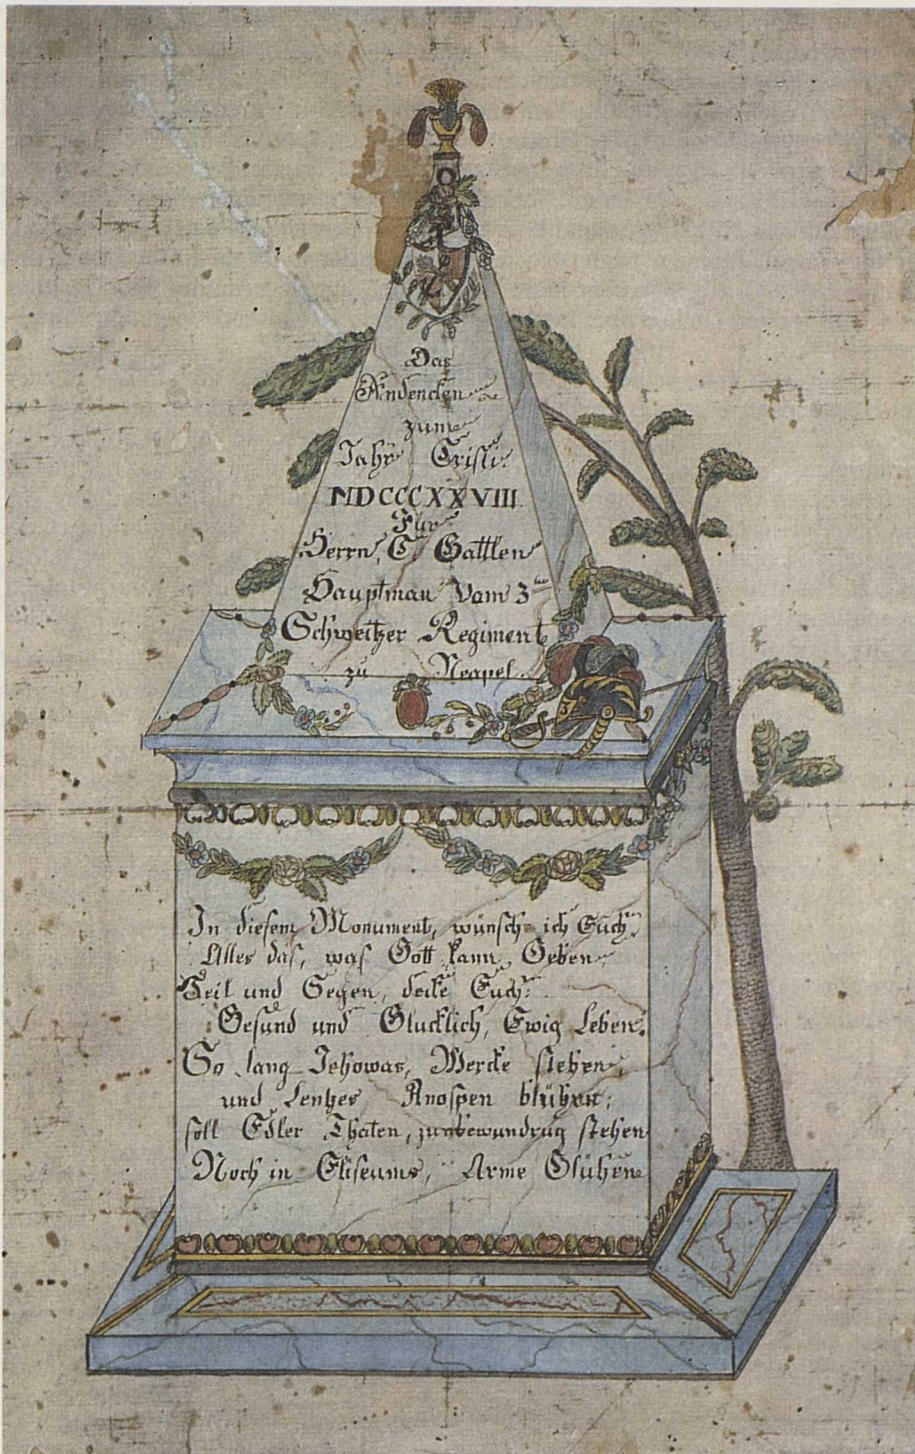 Das
Andencken
zum
Jahr Cristi:
MDCCCXXVIII
Für
Herrn C. Gattlen
Hauptman Vom 3ten
Schweitzer Regiment
zu Neapel
In diesem Monument, wünsch ich Euch,
Alles das, was Gott kann Geben
Heil und Segen, decke Euch:
Gesund und Glucklich, Ewig Leben.
So lang Jehowas, Wercke stehen,
und Lentzes Knospen blühen;
soll Edler Thaten, zur bewundrug stehen
Noch in Eliseums, Arme Glühen